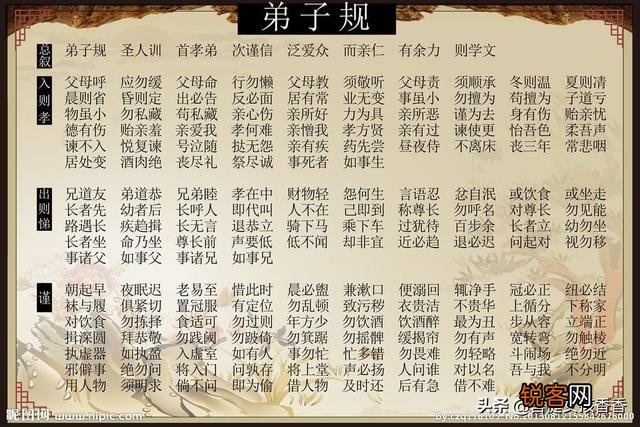 弟子规
总叙 弟子规 圣人训 首孝弟 次谨信 泛爱众 而亲仁 有余力 则学文
入则孝 父母呼 应勿缓 父母命 行勿懒 父母教 须敬听 父母责 须顺承 冬则温 夏则凊
晨则省 昏则定 出必告 反必面 居有常 业无变 事虽小 勿擅为 苟擅为 子道亏
物虽小 勿私藏 苟私藏 亲心伤 亲所好 力为具 亲所恶 谨为去 身有伤 贻亲忧
德有伤 贻亲羞 亲爱我 孝何难 亲憎我 孝方贤 亲有过 谏使更 怡吾色 柔吾声
谏不入 悦复谏 号泣随 挞无怨 亲有疾 药先尝 昼夜侍 不离床 丧三年 常悲咽
居处变 酒肉绝 丧尽礼 祭尽诚 事死者 如事生
出则悌 兄道友 弟道恭 兄弟睦 孝在中 财物轻 怨何生 言语忍 忿自泯 或饮食 或坐走
长者先 幼者后 长呼人 即代叫 人不在 己即到 称尊长 勿呼名 对尊长 勿见能
路遇长 疾趋揖 长无言 退恭立 骑下马 乘下车 过犹待 百步余 长者立 幼勿坐
长者坐 命乃坐 尊长前 声要低 低不闻 却非宜 近必趋 退必迟 问起对 视勿移
事诸父 如事父 事诸兄 如事兄
谨 朝起早 夜眠迟 老易至 惜此时 晨必盥 兼漱口 便溺回 辄净手 冠必正 纽必结
袜与履 俱紧切 置冠服 有定位 勿乱顿 致污秽 衣贵洁 不贵华 上循分 下称家
对饮食 勿拣择 食适可 勿过则 年方少 勿饮酒 饮酒醉 最为丑 步从容 立端正
揖深圆 拜恭敬 勿践阈 勿跛倚 勿箕踞 勿摇髀 缓揭帘 勿有声 宽转弯 勿触棱
执虚器 如执盈 入虚室 如有人 事勿忙 忙多错 勿畏难 勿轻略 斗闹场 绝勿近
邪僻事 绝勿问 将入门 问孰存 将上堂 声必扬 人问谁 对以名 吾与我 不分明
用人物 须明求 倘不问 即为偷 借人物 及时还 后有急 借不难
昵图网 www.nipic.com
头条
锐客网